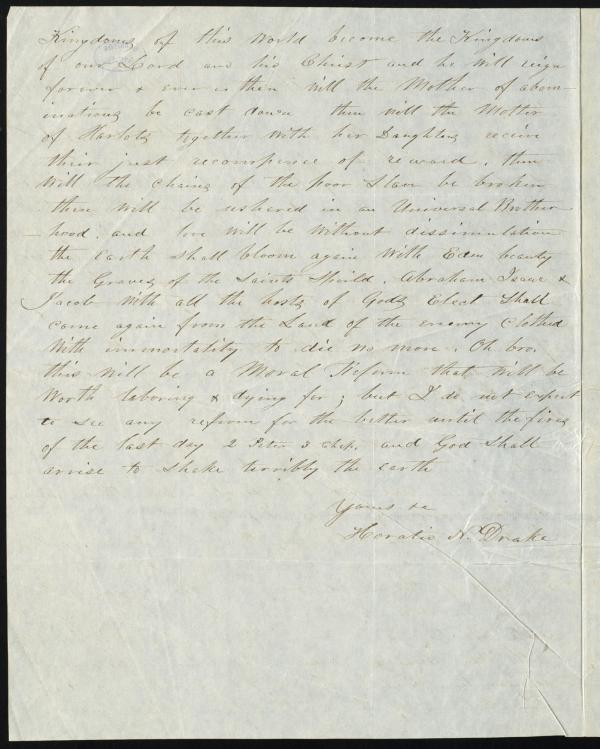 Kingdoms of this World become the Kingdoms
of our Lord and his Christ and he will reign
forever & ever Then will the Mother of abom-
inations be cast down then will the Mother
of Harlots together With her Daughters receive
their just recompence of reward, then
Will the chains of the poor Slave be broken
then will be ushered in an Universal Brother
hood, and love will be Without dissimulation
the Earth shall bloom again With Eden beauty
the Graves of the Saints Abraham Isaac &
Jacob With all the hosts of Gods Elect Shall
come again from the Land of the enemy Clothed
With immortality to die no more. Oh bro,
this Will be a Moral Reform that will be
Worth laboring & dying for; but I do not expect
to see any reform for the better until the fires
of the last day 2 Peter 3 Chap. and God Shall
arrise to Shake terribly the earth
Yours &c
Horatio N. Drake